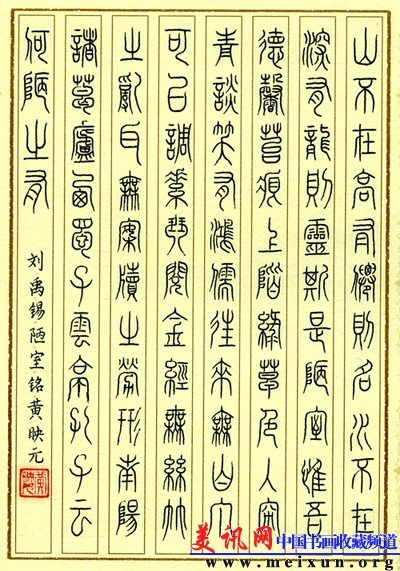 山不在高有僊則名水不在
深有龍則靈斯是陋室惟吾
德馨苔痕上階綠草色入簾
青談笑有鴻儒往來無白丁
可以調素琴閱金經無絲竹
之亂耳無案牘之勞形南陽
諸葛廬西蜀子雲亭孔子云
何陋之有
刘禹锡陋室铭黄映元
美讯网 中国书画收藏频道
www.meixun.org